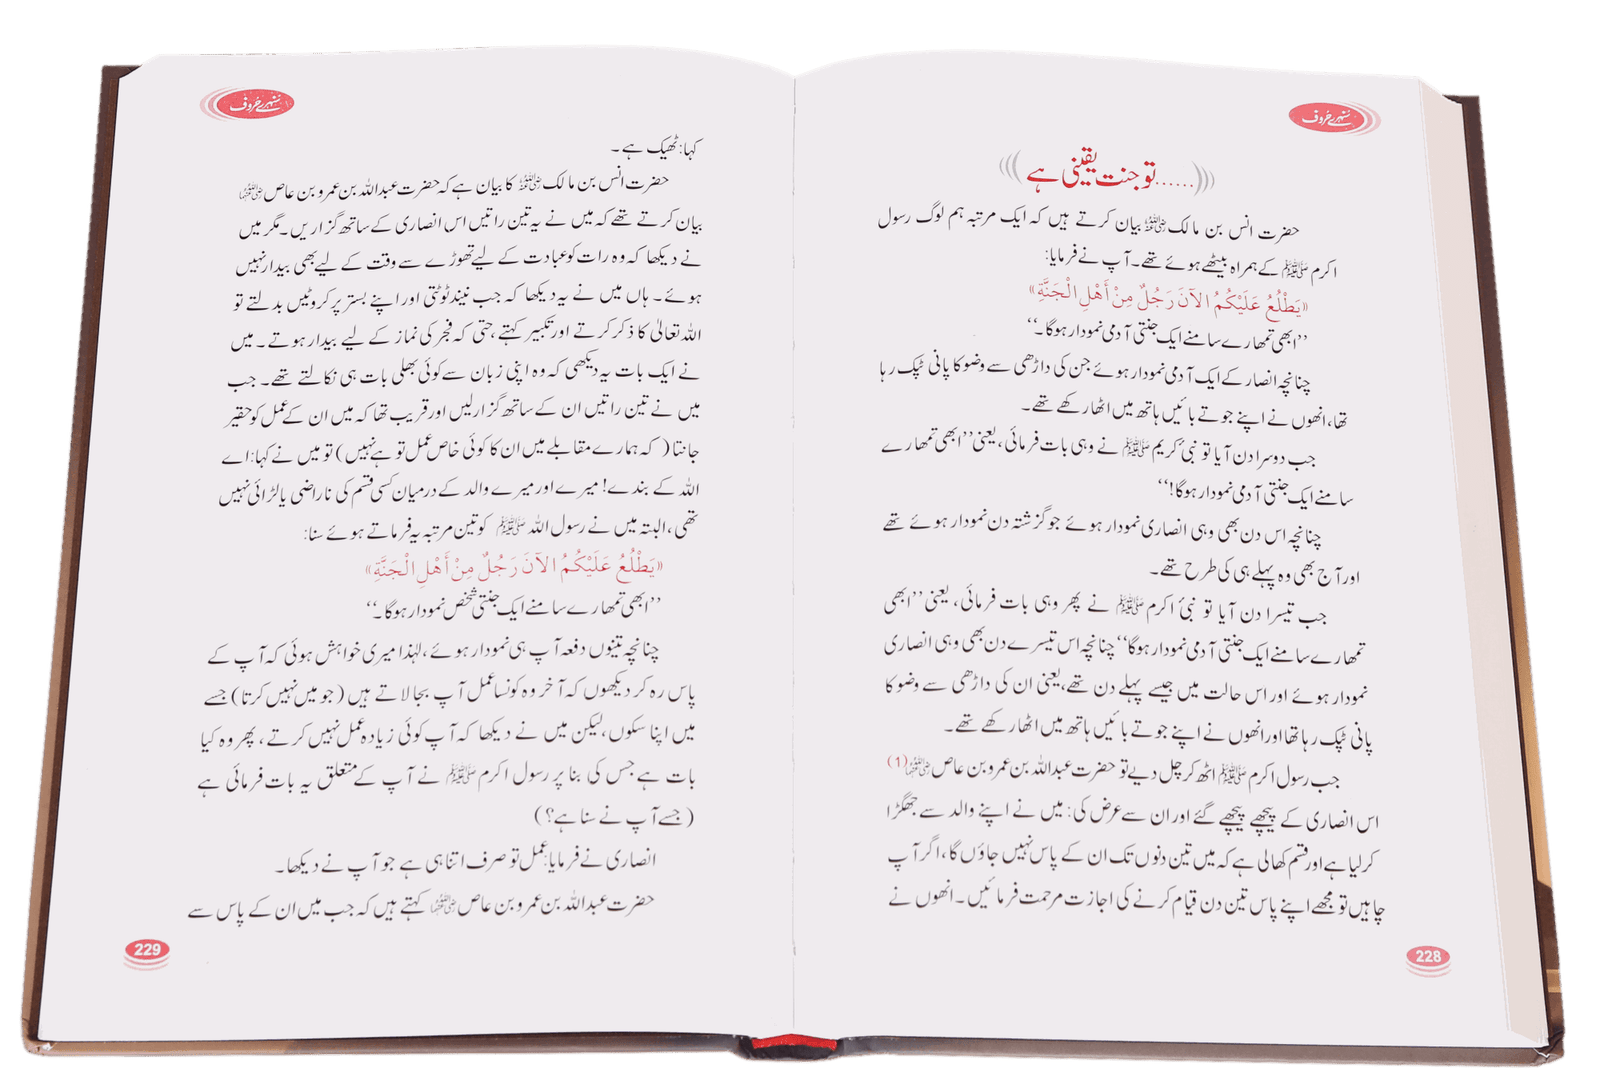 سنہرے حروف
......تو جنت یقینی ہے
حضرت انس بن مالک رضی اللہ عنہ بیان کرتے ہیں کہ ایک مرتبہ ہم لوگ رسول
اکرم ﷺ کے ہمراہ بیٹھے ہوئے تھے۔ آپ نے فرمایا:
«يَطْلُعُ عَلَيْكُمُ الآنَ رَجُلٌ مِنْ أَهْلِ الْجَنَّةِ»
’’ابھی تمھارے سامنے ایک جنتی آدمی نمودار ہوگا۔‘‘
چنانچہ انصار کے ایک آدمی نمودار ہوئے جن کی داڑھی سے وضو کا پانی ٹپک رہا
تھا، انھوں نے اپنے جوتے بائیں ہاتھ میں اٹھا رکھے تھے۔
جب دوسرا دن آیا تو نبیٔ کریم ﷺ نے وہی بات فرمائی، یعنی ’’ابھی تمھارے
سامنے ایک جنتی آدمی نمودار ہوگا!‘‘
چنانچہ اس دن بھی وہی انصاری نمودار ہوئے جو گزشتہ دن نمودار ہوئے تھے
اور آج بھی وہ پہلے ہی کی طرح تھے۔
جب تیسرا دن آیا تو نبیٔ اکرم ﷺ نے پھر وہی بات فرمائی، یعنی ’’ابھی
تمھارے سامنے ایک جنتی آدمی نمودار ہوگا‘‘ چنانچہ اس تیسرے دن بھی وہی انصاری
نمودار ہوئے اور اس حالت میں جیسے پہلے دن تھے، یعنی ان کی داڑھی سے وضو کا
پانی ٹپک رہا تھا اور انھوں نے اپنے جوتے بائیں ہاتھ میں اٹھا رکھے تھے۔
جب رسول اکرم ﷺ اٹھ کر چل دیے تو حضرت عبداللہ بن عمرو بن عاص رضی اللہ عنہما (1)
اس انصاری کے پیچھے پیچھے گئے اور ان سے عرض کی: میں نے اپنے والد سے جھگڑا
کر لیا ہے اور قسم کھالی ہے کہ میں تین دنوں تک ان کے پاس نہیں جاؤں گا، اگر آپ
چاہیں تو مجھے اپنے پاس تین دن قیام کرنے کی اجازت مرحمت فرمائیں۔ انھوں نے
228
سنہرے حروف
کہا: ٹھیک ہے۔
حضرت انس بن مالک رضی اللہ عنہ کا بیان ہے کہ حضرت عبداللہ بن عمرو بن عاص رضی اللہ عنہما
بیان کرتے تھے کہ میں نے یہ تین راتیں اس انصاری کے ساتھ گزاریں۔ مگر میں
نے دیکھا کہ وہ رات کو عبادت کے لیے تھوڑے سے وقت کے لیے بھی بیدار نہیں
ہوئے۔ ہاں میں نے یہ دیکھا کہ جب نیند ٹوٹتی اور اپنے بستر پر کروٹیں بدلتے تو
اللہ تعالیٰ کا ذکر کرتے اور تکبیر کہتے، حتی کہ فجر کی نماز کے لیے بیدار ہوتے۔ میں
نے ایک بات یہ دیکھی کہ وہ اپنی زبان سے کوئی بھلی بات ہی نکالتے تھے۔ جب
میں نے تین راتیں ان کے ساتھ گزار لیں اور قریب تھا کہ میں ان کے عمل کو حقیر
جانتا (کہ ہمارے مقابلے میں ان کا کوئی خاص عمل تو ہے نہیں) تو میں نے کہا: اے
اللہ کے بندے! میرے اور میرے والد کے درمیان کسی قسم کی ناراضی یا لڑائی نہیں
تھی، البتہ میں نے رسول اللہ ﷺ کو تین مرتبہ یہ فرماتے ہوئے سنا:
«يَطْلُعُ عَلَيْكُمُ الآنَ رَجُلٌ مِنْ أَهْلِ الْجَنَّةِ»
’’ابھی تمھارے سامنے ایک جنتی شخص نمودار ہوگا۔‘‘
چنانچہ تینوں دفعہ آپ ہی نمودار ہوئے، لہٰذا میری خواہش ہوئی کہ آپ کے
پاس رہ کر دیکھوں کہ آخر وہ کونسا عمل آپ بجا لاتے ہیں (جو میں نہیں کرتا) جسے
میں اپنا سکوں، لیکن میں نے دیکھا کہ آپ کوئی زیادہ عمل نہیں کرتے، پھر وہ کیا
بات ہے جس کی بنا پر رسول اکرم ﷺ نے آپ کے متعلق یہ بات فرمائی ہے
(جسے آپ نے سنا ہے؟)
انصاری نے فرمایا: عمل تو صرف اتنا ہی ہے جو آپ نے دیکھا۔
حضرت عبداللہ بن عمرو بن عاص رضی اللہ عنہما کہتے ہیں کہ جب میں ان کے پاس سے
229